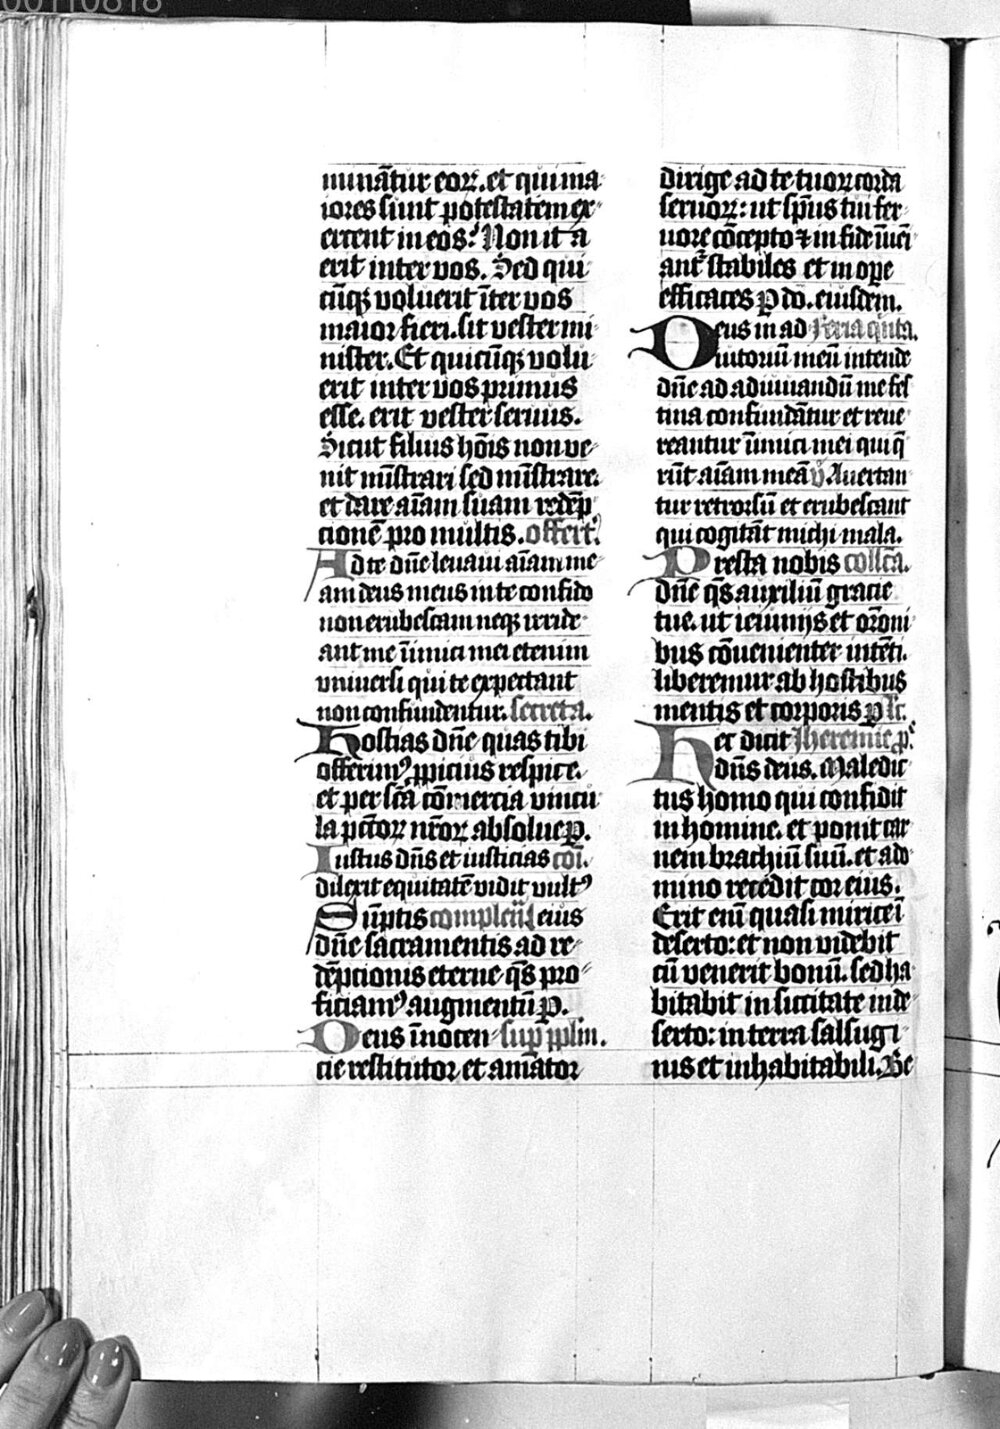 minãtur eoꝝ. et qui ma
iores sunt potestatem ex
ercent in eos. Non ita
erit inter vos. Sed qui
cūqꝫ voluerit īter vos
maior fieri. sit vester mi
nister. Et quicūqꝫ volu
erit inter vos primus
esse. erit vester seruus.
Sicut filius hoīs non ve
nit mīstrari sed mīstrare.
et dare aīam suam redēp
cionē pro multis. offert'.
Ad te dn̄e leuaui aīam me
am deus meus in te confido
non erubescam neqꝫ irride
ant me īimici mei etenim
vniuersi qui te expectant
non confundentur. secreta.
Hostias dn̄e quas tibi
offerimꝰ ꝓpicius respice.
et per sc̄a cōmercia vincu
la pctoꝝ nr̄oꝝ absolue ꝑ.
Iustus dn̄s et iusticias cōi.
dilexit equitatē vidit vultꝰ
Sūptis complen̄ eius
dn̄e sacramentis ad re
dēpcionis eterne q̄s pro
ficiamꝰ augmentū ꝑ.
Deus īnocen sup pplm.
cie restitutor et amator
dirige ad te tuoꝝ corda
seruoꝝ: ut sp̄us tui fer
uore cōcepto ⁊ in fide īuei
ant' stabiles et in oꝑe
efficaces ꝑ dō. eiusdem.
Deus in ad Feria quīta.
iutoriū meū intende
dn̄e ad adiuuandū me fes
tina confundātur et reue
reantur īimici mei qui q̄
rūt aīam meā v̄ Auertan
tur retrorsū et erubescant
qui cogitāt michi mala.
Presta nobis collc̄a.
dn̄e q̄s auxiliū gracie
tue. ut ieiunijs et orōni
bus cōuenienter intēti.
liberemur ab hostibus
mentis et corporis ꝑ lc̄.
Hec dicit Iheremie ꝓ.
dn̄s deus. Maledic
tus homo qui confidit
in homine. et ponit car
nem brachiū suū. et a do
mino recedit cor eius.
Erit enī quasi mirice ī
deserto: et non videbit
cū venerit bonū. sed ha
bitabit in siccitate in de
serto: in terra salsugi
nis et inhabitabili. Be